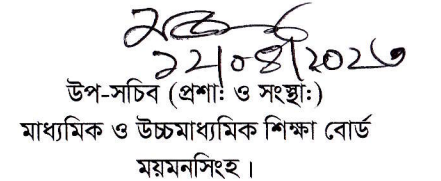 ১২/০৪/২০২৩
উপ-সচিব (প্রশাঃ ও সংস্থাঃ)
মাধ্যমিক ও উচ্চমাধ্যমিক শিক্ষা বোর্ড
ময়মনসিংহ।